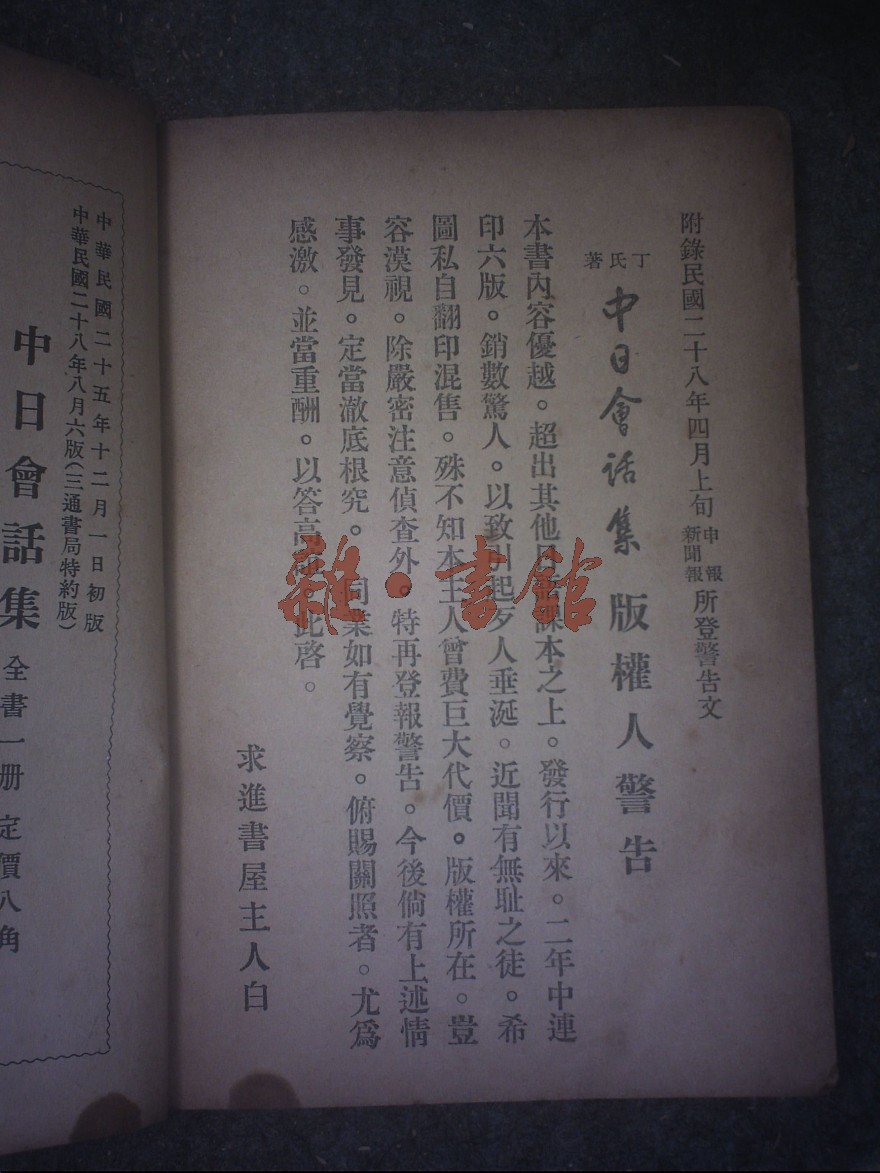 附錄民國二十八年四月上旬申報新聞報所登警告文
丁氏著
中日會話集版權人警告
本書內容優越。超出其他日語課本之上。發行以來。二年中連
印六版。銷數驚人。以致引起歹人垂涎。近聞有無恥之徒。希
圖私自翻印混售。殊不知本主人曾費巨大代價。版權所在。豈
容漠視。除嚴密注意偵查外。特再登報警告。今後倘有上述情
事發見。定當澈底根究。同業如有覺察。俯賜關照者。尤為
感激。並當重酬。以答高 此啓。
求進書屋主人白
中華民國二十五年十二月一日初版
中華民國二十八年八月六版(三通書局特約版)
中日會話集 全書一册 定價八角
雜·書館